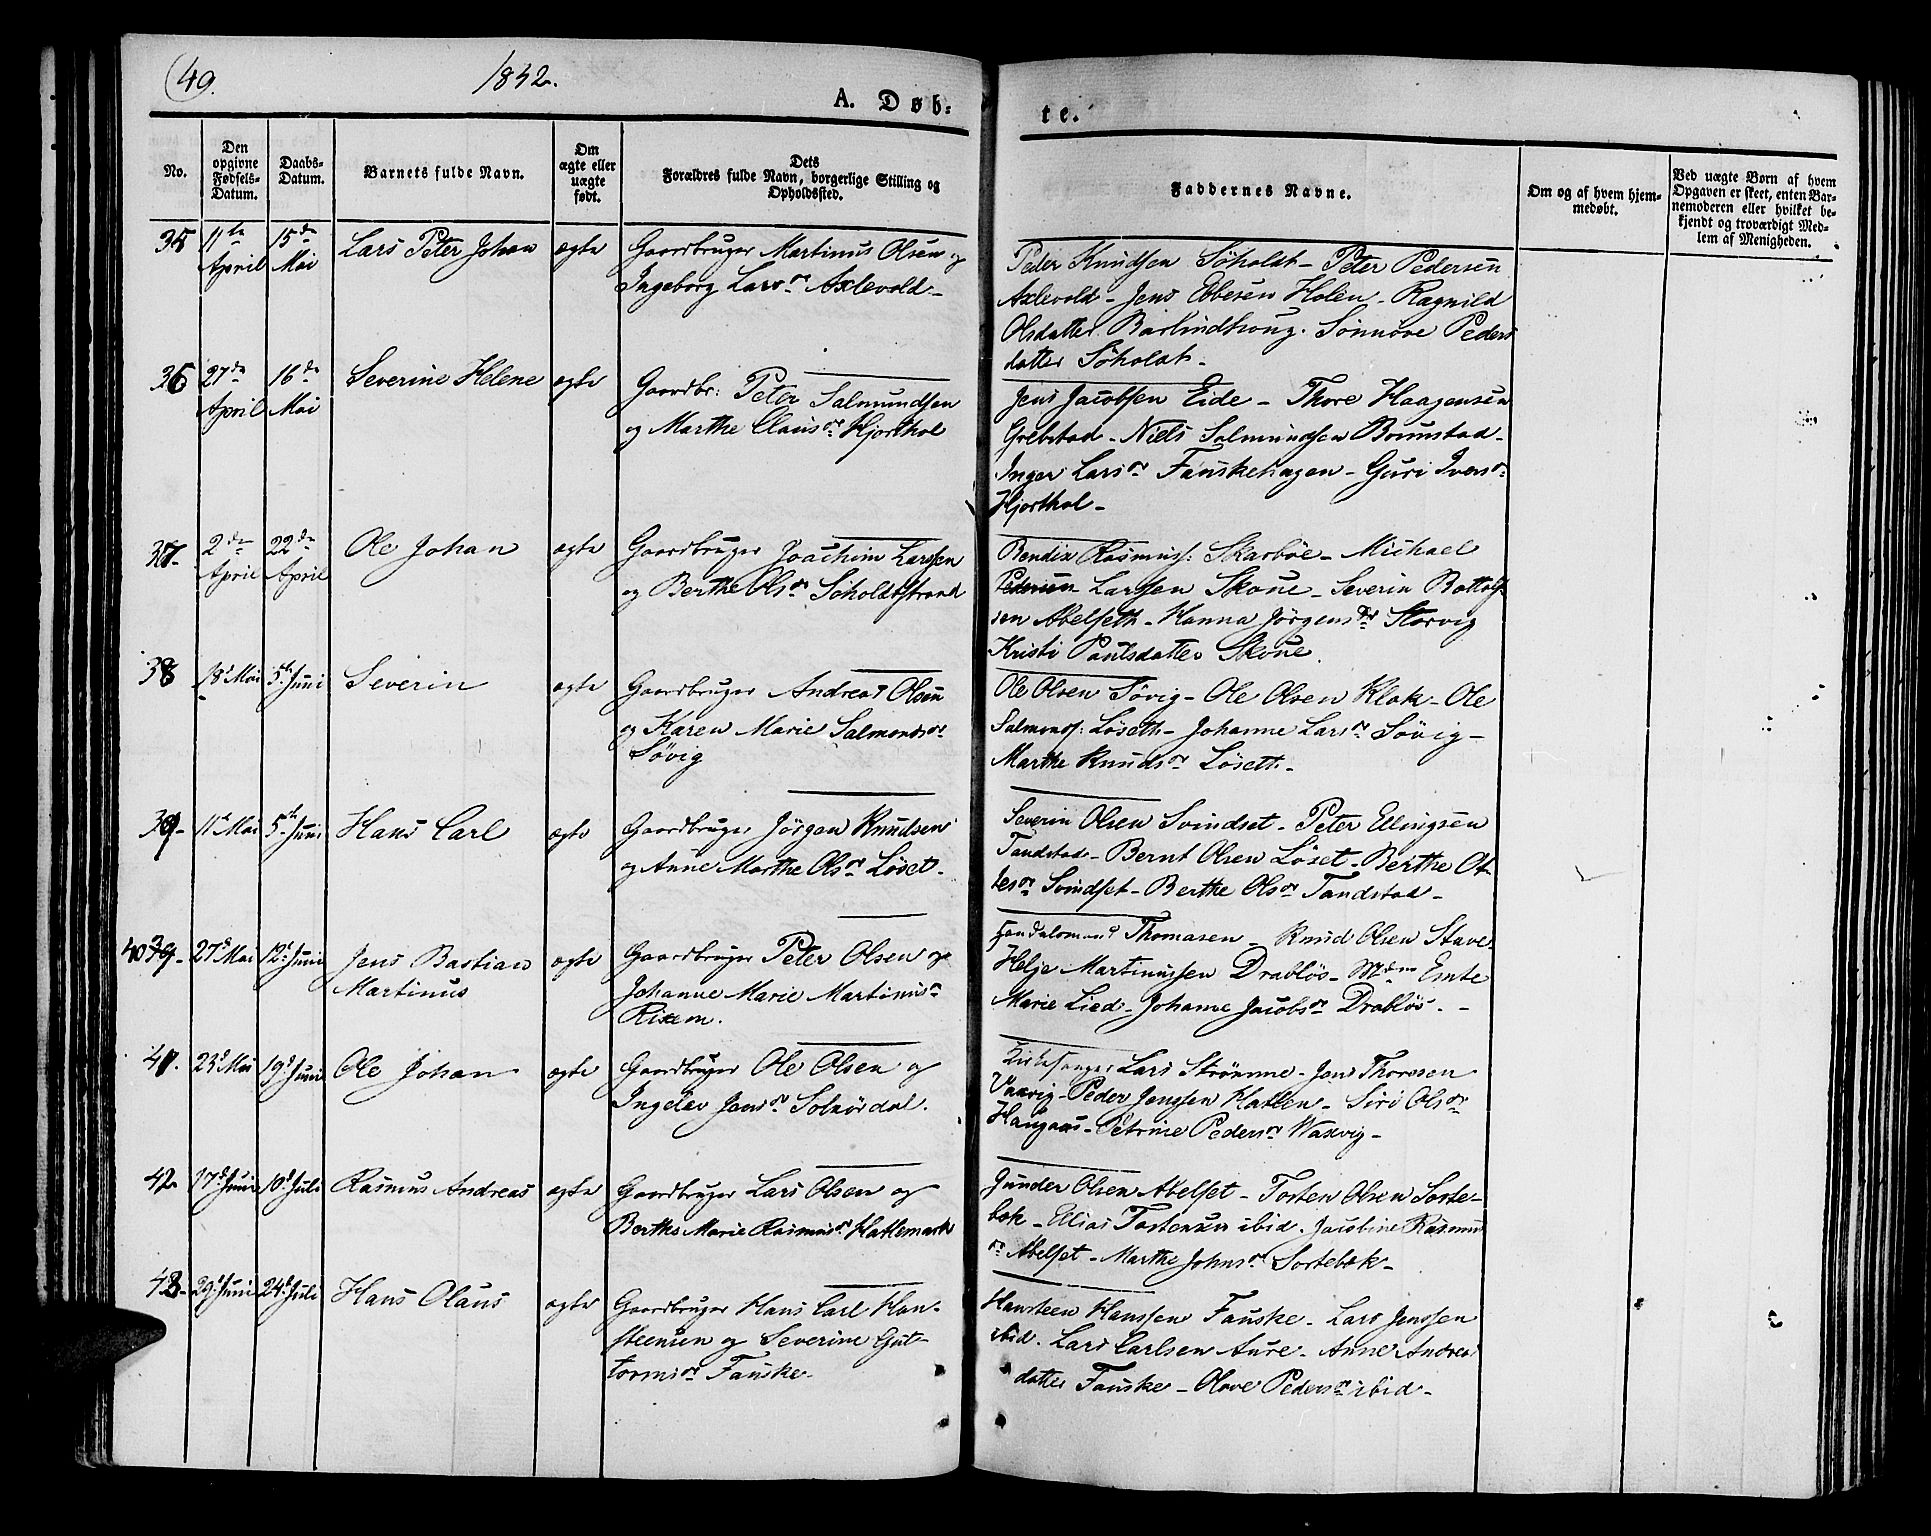 49.
1842.
A. Døb-
te.
No.
Den opgivne Fødsels-Datum.
Daabs-Datum.
Barnets fulde Navn.
Om ægte eller uægte født.
Dets Forældres fulde Navn, borgerlige Stilling og Opholdssted.
Faddernes Navne.
Om og af hvem hjem-medøbt.
Ved uægte Børn af hvem Opgaven er skeet, enten Bar-nemoderen eller hvilket be-kjendt og troværdigt Med-lem af Menigheden.
35 11te April 15de Mai Lars Peter Johan ægte
Gaardbruger Martinus Olsen og
Ingeborg Larsdr Axlevold-
Peder Knudsen Søholdt- Peter Pedersen
Axlevold- Jens Ebbesen Holen- Ragnild
Olsdatter Barlindhoug. Sønnøve Peders
datter Søholdt-
36 27de April 16de Mai Severine Helene ægte
Gaardbr: Peter Salmundsen
og Marthe Clausdr Hjorthol
Jens Jacobsen Eide- Thore Haagensen
Grebstad- Niels Salmundsen Brunstad-
Inger Larsdr Fauskehagen- Guri Iversdr
Hjorthol-
37- 2den April 22de April Ole Johan ægte
Gaardbruger Joachim Larssen
og Berthe Olsdr Søholdtstrand
Bendix Rasmuss: Skarbøe- Michael
Pedersen Larssen Skoue- Severin Bottolf-
sen Abelseth- Hanna Jørgensdr Storvig
Kristi Paulsdatter Skoue.
38 18 Mai 5te Juni Severin ægte
Gaardbruger Andreas Olsen
og Karen Marie Salmondsdr
Søvig
Ole Olsen Søvig- Ole Olsen Klok- Ole
Salmonds: Løseth- Johanne Larsdr Søvig-
Marthe Knudsdr Løseth-
39- 11te Mai 5te Juni Hans Carl ægte
Gaardbruger Jørgen Knudsen
og Anne Marthe Olsdr Løset-
Severin Olsen Svindset- Peter Ellingsen
Tandstad- Bernt Olsen Løset- Berthe Ol-
sdr Svindset- Berthe Olsdr Tandstad-
40 39- 27d Mai 12t Juni Jens Bastian
Martinus ægte
Gaardbruger Peter Olsen og
Johanne Marie Martinusdr
Rixem.
Handelsmand Thomasen- Knud Olsen Stave-
Helje Martinussen Drabløs- Mdm Emte
Marie Lied- Johanne Jacobsdr Drabløs.-
41. 23d Mai 19d Juni Ole Johan ægte
Gaardbruger Ole Olsen og
Ingelev Jensdr Solnørdal.
Kirkesanger Lars Strømme- Jens Thoresen
Vaxvig- Peder Jenssen Hatlen- Siri Olsdr
Haugaas- Petrine Pedersdr Waxvig-
42 17d Juni 10d Juli Rasmus Andreas ægte
Gaardbruger Lars Olsen og
Berthe Marie Rasmusdr Hatlemark
Gunder Olsen Abelset- Tosten Olsen Sorte-
bæk- Elias Tostensen ibid. Jacobine Rasmus
dr Abelset- Marthe Johnsdr Sortebæk-
43- 29d Juni 24d Juli Hans Olaus ægte
Gaardbruger Hans Carl Han-
steensen og Severine Gut-
tormsdr Fauske-
Hansteen Hanssen Fauske- Lars Jenssen
ibid. Lars Carlsen Aure- Anne Andreas
datter Fauske- Olave Pedersdr ibid-